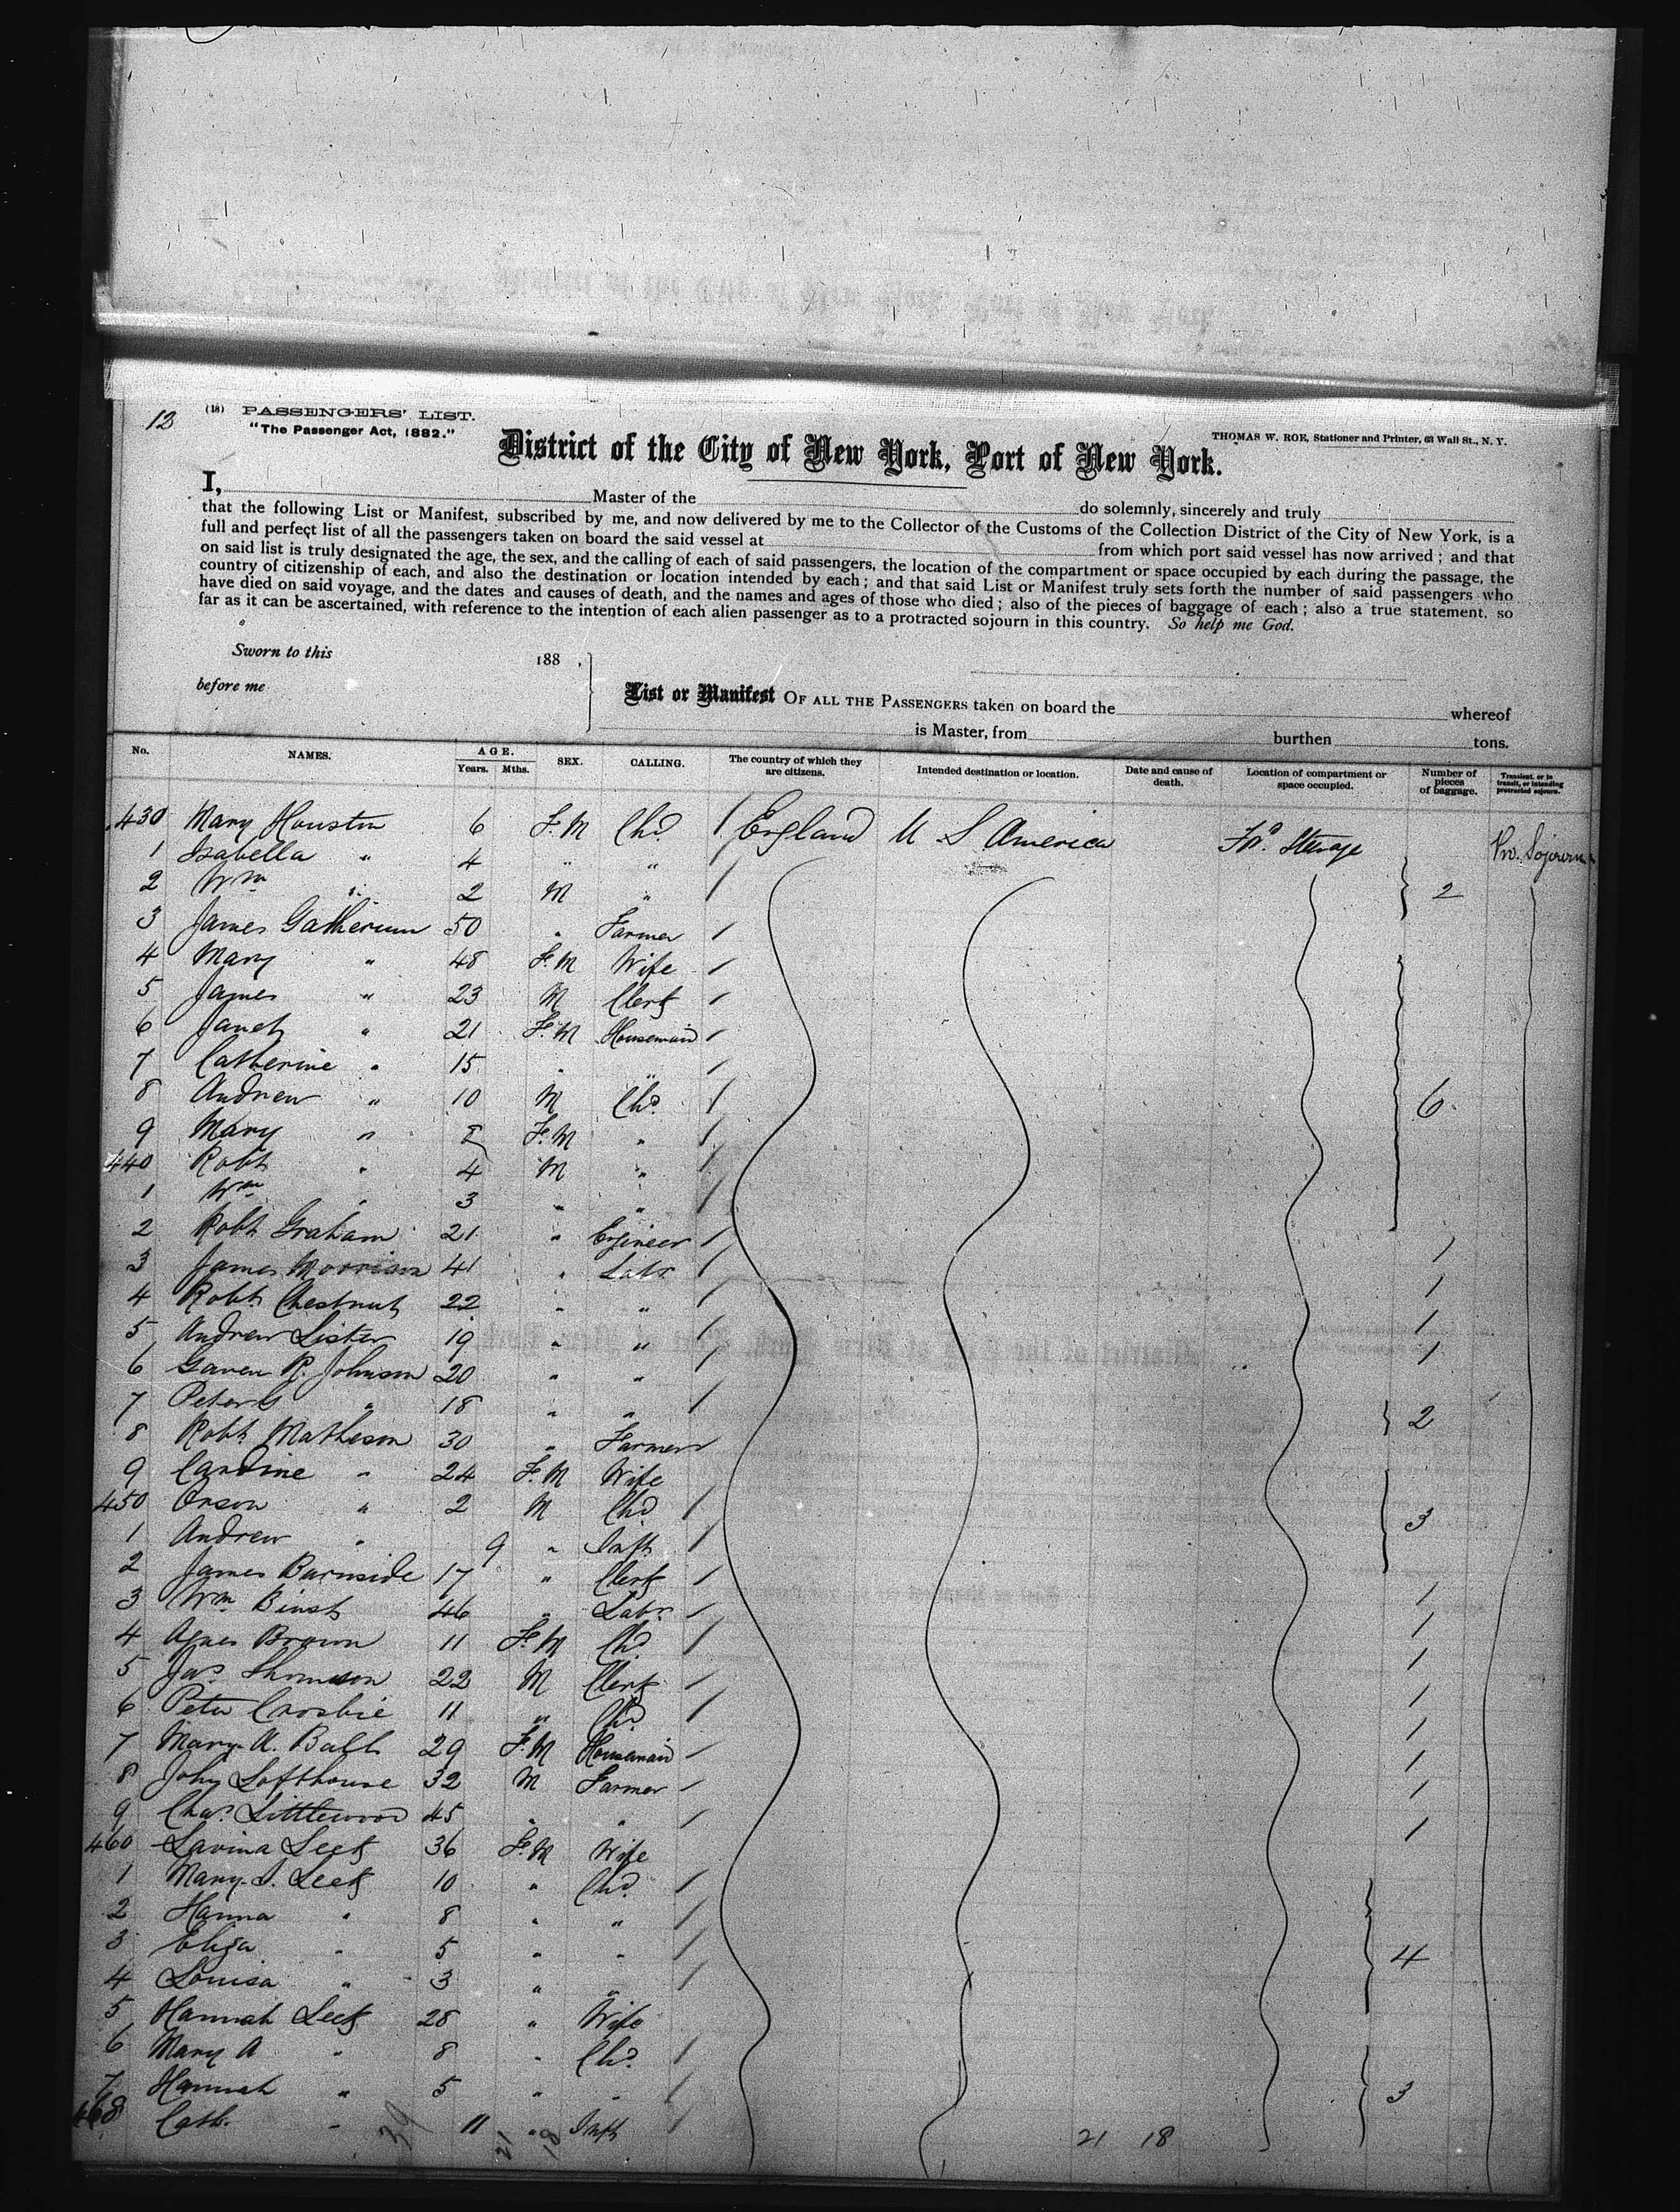 12
(18) PASSENGERS' LIST.
"The Passenger Act, 1882."
THOMAS W. ROE, Stationer and Printer, 63 Wall St., N. Y.
District of the City of New York, Port of New York.
I, Master of the do solemnly, sincerely and truly
that the following List or Manifest, subscribed by me, and now delivered by me to the Collector of the Customs of the Collection District of the City of New York, is a
full and perfect list of all the passengers taken on board the said vessel at from which port said vessel has now arrived; and that
on said list is truly designated the age, the sex, and the calling of each of said passengers, the location of the compartment or space occupied by each during the passage, the
country of citizenship of each, and also the destination or location intended by each; and that said List or Manifest truly sets forth the number of said passengers who
have died on said voyage, and the dates and causes of death, and the names and ages of those who died; also of the pieces of baggage of each; also a true statement, so
far as it can be ascertained, with reference to the intention of each alien passenger as to a protracted sojourn in this country. So help me God.
Sworn to this 188 ,
before me
List or Manifest OF ALL THE PASSENGERS taken on board the whereof
is Master, from burthen tons.
No. NAMES. AGE. Years. Mths. SEX. CALLING. The country of which they are citizens. Intended destination or location. Date and cause of death. Location of compartment or space occupied. Number of pieces of baggage. Transient, or in transit, or intending protracted sojourn.
430 Mary Houston 6 Fe.M Chd. / England U S America Fd. Steerage Pro. Sojourn
1 Isabella " 4 " " /
2 Wm " 2 M " / 2
3 James Gatherum 50 " Farmer /
4 Mary " 48 Fe.M Wife /
5 James " 23 M Clerk /
6 Janet " 21 Fe.M Housemaid /
7 Catherine " 15 " " /
8 Andrew " 10 M Chd. / 6
9 Mary " 8 Fe.M " /
440 Robt " 4 M " /
1 Wm " 3 " " /
2 Robt Graham 21 " Engineer / 1
3 James Morrison 41 " Labr / 1
4 Robt Chestnut 22 " " / 1
5 Andrew Lister 19 " " / 1
6 Gaven R. Johnson 20 " " /
7 Peter G " 18 " " / 2
8 Robt Matheson 30 " Farmer /
9 Caroline " 24 Fe.M Wife
450 Orson " 2 M Chd. / 3
1 Andrew " 9 " Inft /
2 James Burnside 17 " Clerk / 1
3 Wm 46 " Labr. / 1
4 Agnes Brown 11 Fe.M Chd / 1
5 Jas Thomson 22 M Clerk / 1
6 Peter Crosbie 11 " Chd / 1
7 Mary A. Ball 29 Fe.M Housemaid / 1
8 John Lofthouse 32 M Farmer / 1
9 Chas. Littlewood 45 " " / 1
460 Lavina Leek 36 Fe.M Wife
1 Mary J. Leek 10 " Chd. /
2 Hanna " 8 " " /
3 Eliza " 5 " " / 4
4 Louisa " 3 " " /
5 Hannah Leek 28 " Wife
6 Mary A " 8 " Chd. /
7 Hannah " 5 " " / 3
468 Cath. " 11 " Inft /
39 21 18 21 18